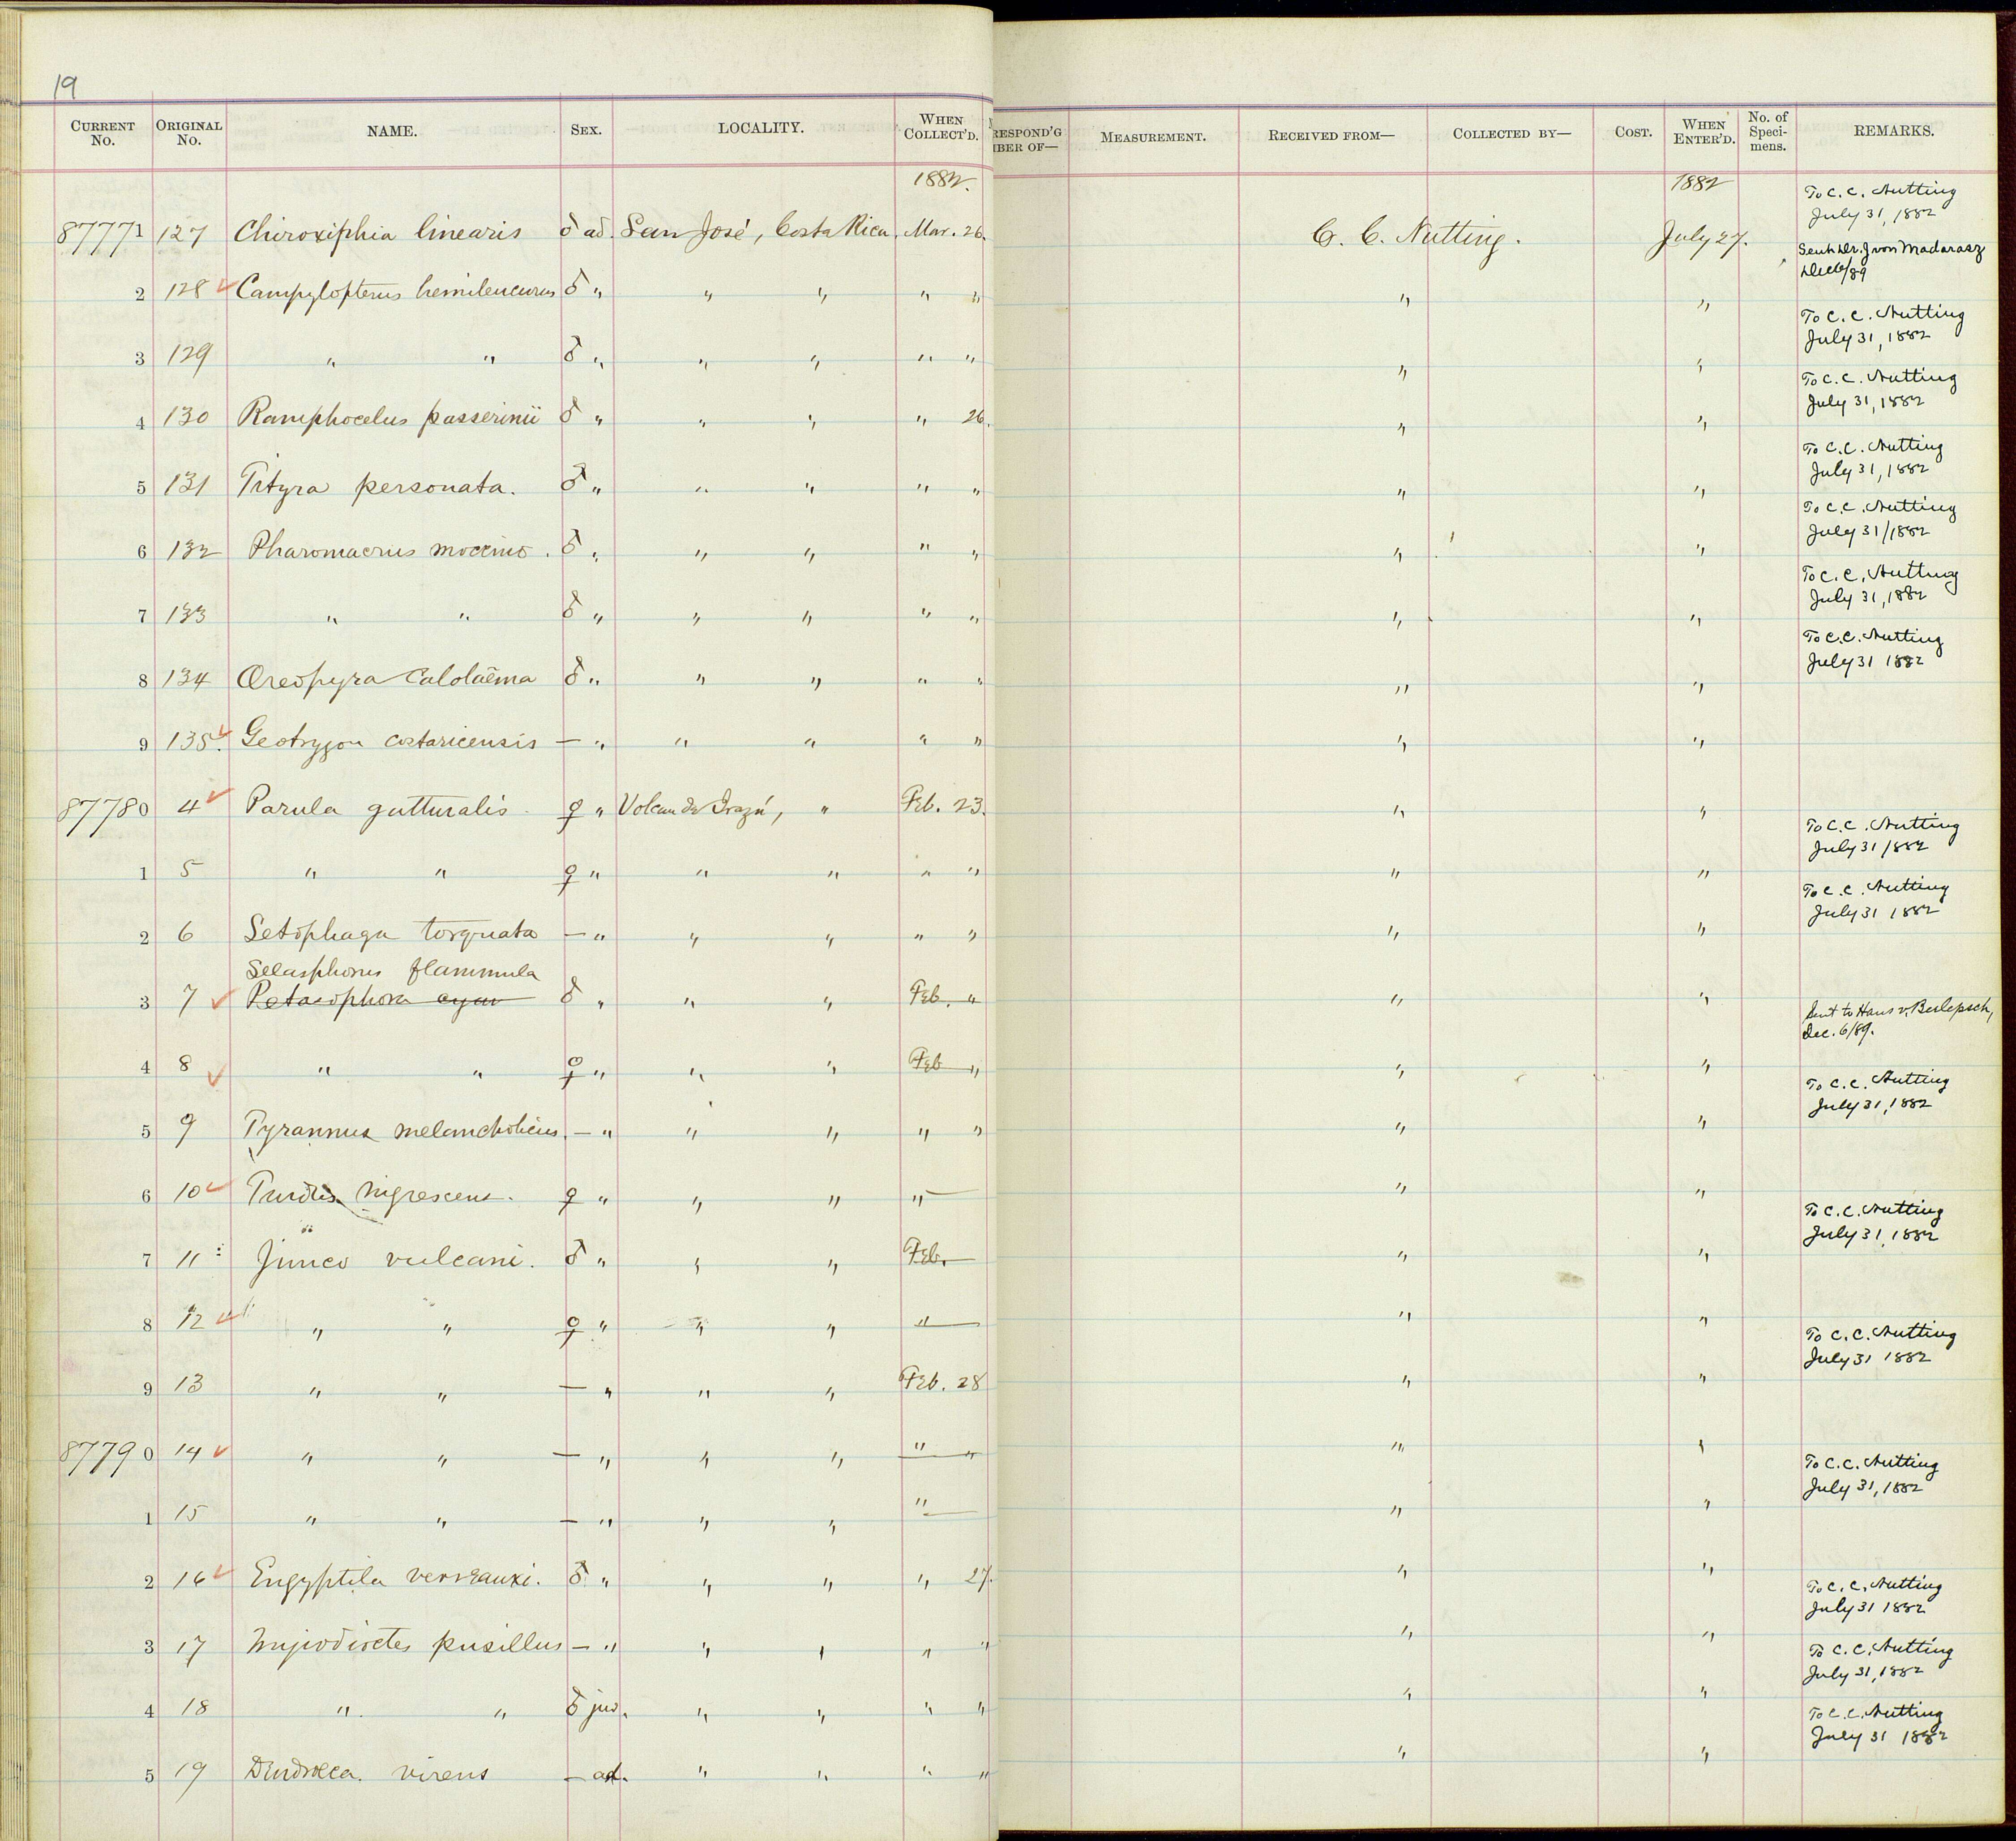 19
CURRENT No. ORIGINAL No. NAME. SEX. LOCALITY. WHEN COLLECT'D. RESPOND'G BER OF— MEASUREMENT. RECEIVED FROM— COLLECTED BY— COST. WHEN ENTER'D. No. of Speci-mens. REMARKS.
1882. 1882
To C. C. Nutting
July 31, 1882
87771 127 Chiroxiphia linearis ♂ ad. San José, Costa Rica. Mar. 26. C. C. Nutting. July 27.
Sent Dr. J von Madarasz
Dec 6/89
2 128 ✓ Campylopterus hemileucurus ♂ " " " " " " "
To C. C. Nutting
July 31, 1882
3 129 " " ♂ " " " " " " "
To C. C. Nutting
July 31, 1882
4 130 Ramphocelus passerinii ♂ " " " " 26. " "
To C. C. Nutting
July 31, 1882
5 131 Tityra personata. ♂ " " " " " " "
To C. C. Nutting
July 31/1882
6 132 Pharomacrus mocino. ♂ " " " " " " "
To C. C. Nutting
July 31, 1882
7 133 " " ♂ " " " " " " "
To C. C. Nutting
July 31 1882
8 134 Oreopyra calolaema ♂ " " " " " " "
9 135. ✓ Geotrygon costaricensis — " " " " " " "
87780 4 ✓ Parula gutturalis ♀ " Volcan de Irazú, " Feb. 23. " "
To C. C. Nutting
July 31/882
1 5 " " ♀ " " " " " " "
To C. C. Nutting
July 31 1882
2 6 Setophaga torquata — " " " " " " "
Selasphorus flammula
3 7 ✓ Petasophora cyan ♂ " " " Feb. " " "
Sent to Hans v. Berlepsch,
Dec. 6/89.
4 8 ✓ " " ♀ " " " Feb " " "
To C. C. Nutting
July 31, 1882
5 9 Tyrannus melancholicus. — " " " " " " "
6 10 ✓ Turdus nigrescens. ♀ " " " " — " "
To C. C. Nutting
July 31, 1882
7 11 Junco vulcani. ♂ " " " Feb. — " "
8 12 ✓ " " ♀ " " " " — " "
To C. C. Nutting
July 31 1882
9 13 " " — " " " Feb. 28 " "
87790 14 ✓ " " — " " " " " " "
To C. C. Nutting
July 31, 1882
1 15 " " — " " " " — " "
2 16 ✓ Engyptila verreauxi. ♂ " " " " 27. " "
To C. C. Nutting
July 31 1882
3 17 Myiodioctes pusillus — " " " " " " "
To C. C. Nutting
July 31, 1882
4 18 " " ♂ juv. " " " " " "
To C. C. Nutting
July 31 1882
5 19 Dendroeca virens — ad. " " " " " "